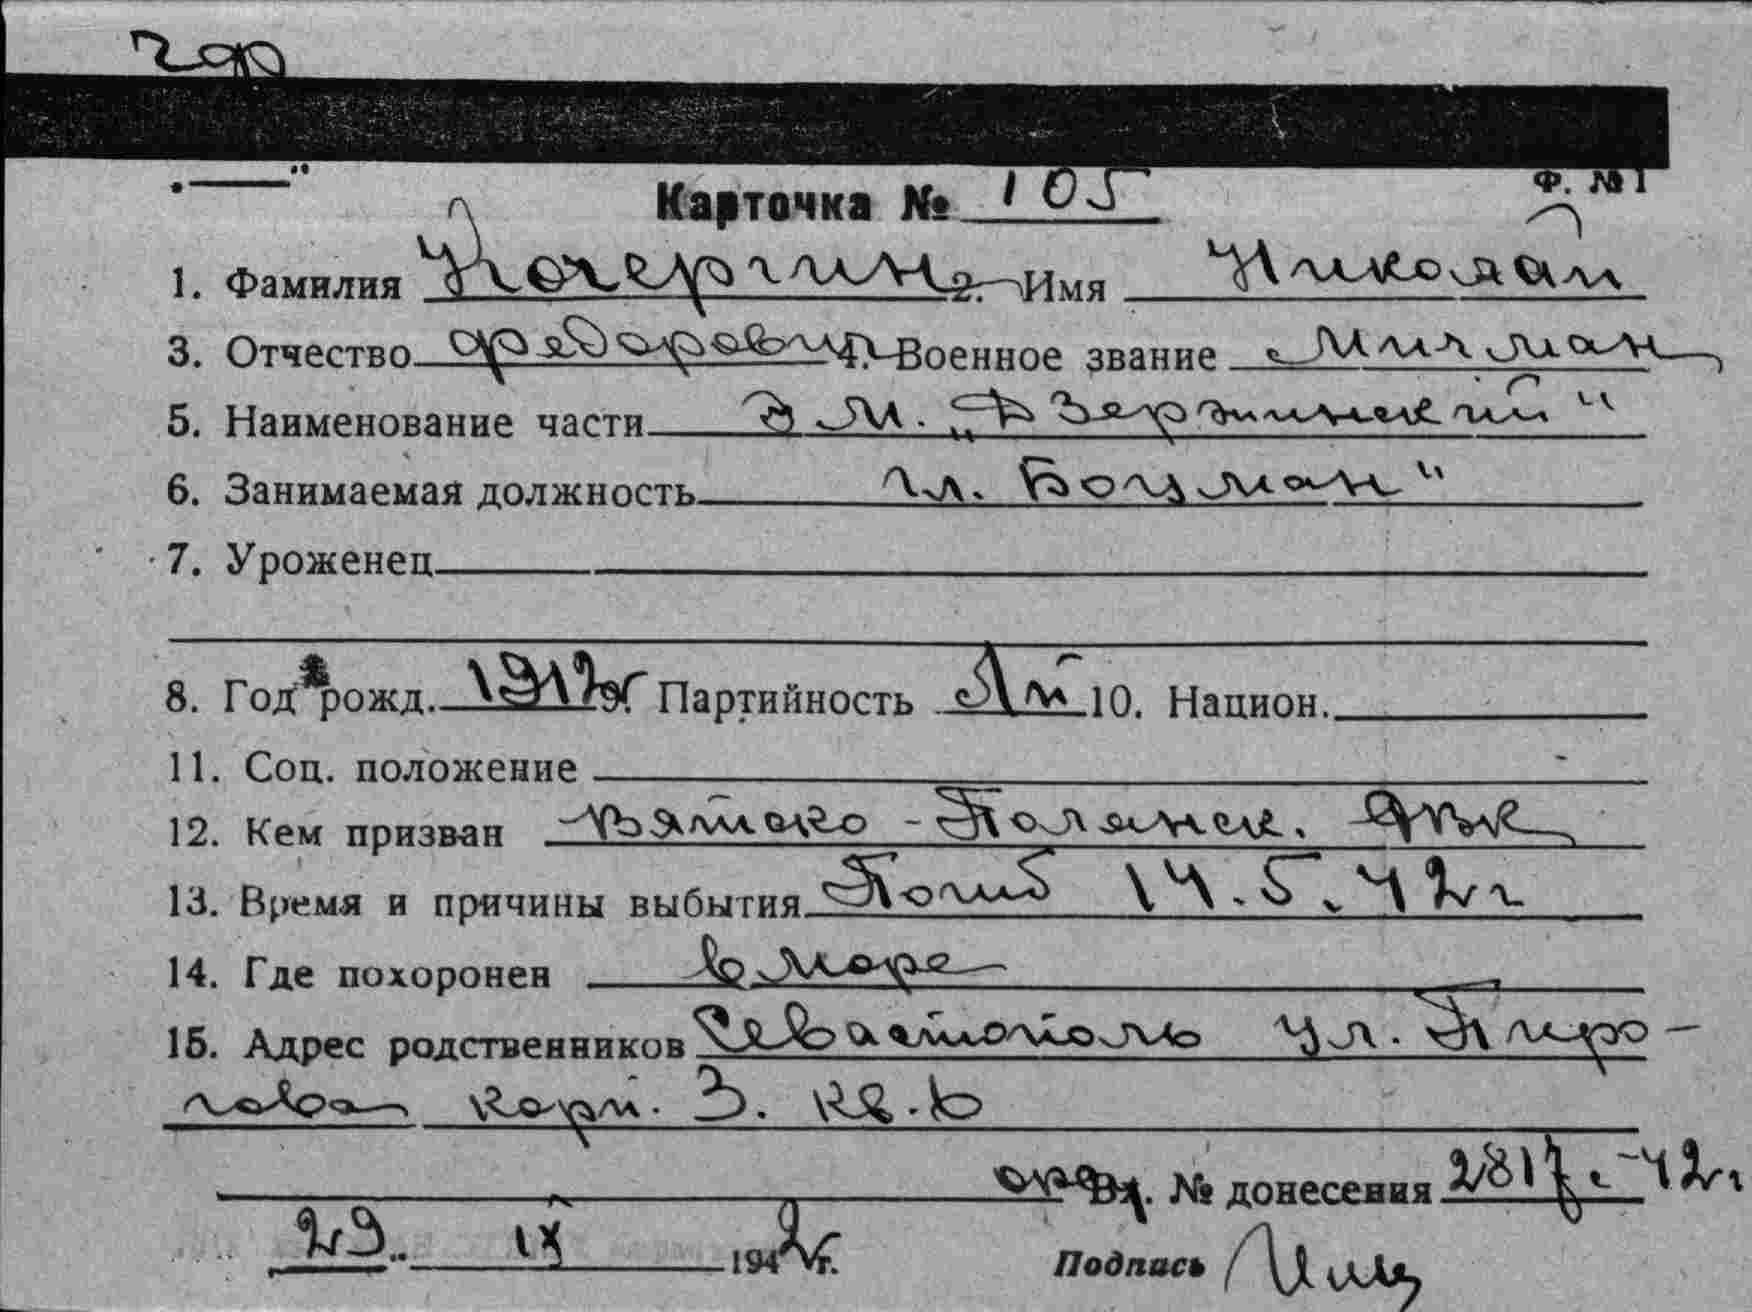 Карточка № 105 Ф. № 1
1. Фамилия Кочергин 2. Имя Николай
3. Отчество Федорович 4. Военное звание Мичман
5. Наименование части Э.М. "Дзержинский"
6. Занимаемая должность гл. Боцман
7. Уроженец
8. Год рожд. 1912 9. Партийность 10. Национ.
11. Соц. положение
12. Кем призван
13. Время и причины выбытия Погиб 14.5.42 г
14. Где похоронен в море
15. Адрес родственников Севастополь ул. Пиро-
говой корп. 3. кв. 10
Вх. № донесения 2817с-42г
23 IX 1942 г. Подпись